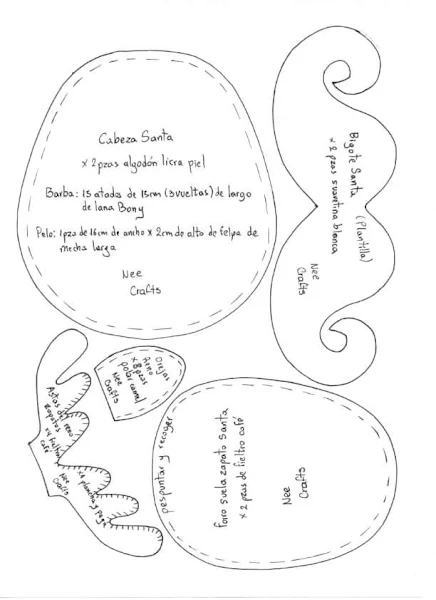 Cabeza Santa
x 2 pzas algodón licra piel
Barba: 15 atados de 15cm (3 vueltas) de largo
de lana Bony
Pelo: 1 pza de 16cm de ancho x 2cm de alto de felpa de
mecha larga
Nee
Crafts
Bigote Santa (Plantilla)
x 2 pzas suavetina blanca
Nee
Crafts
Orejas
Reno
x 8 pzas
polar camel
Nee
Crafts
Astas de reno
zapatos
x4 fieltro
café
x4 plancha y pega
Nee
Crafts
despuntar y recoger
forro suela zapato Santa
x 2 pzas de fieltro café
Nee
Crafts